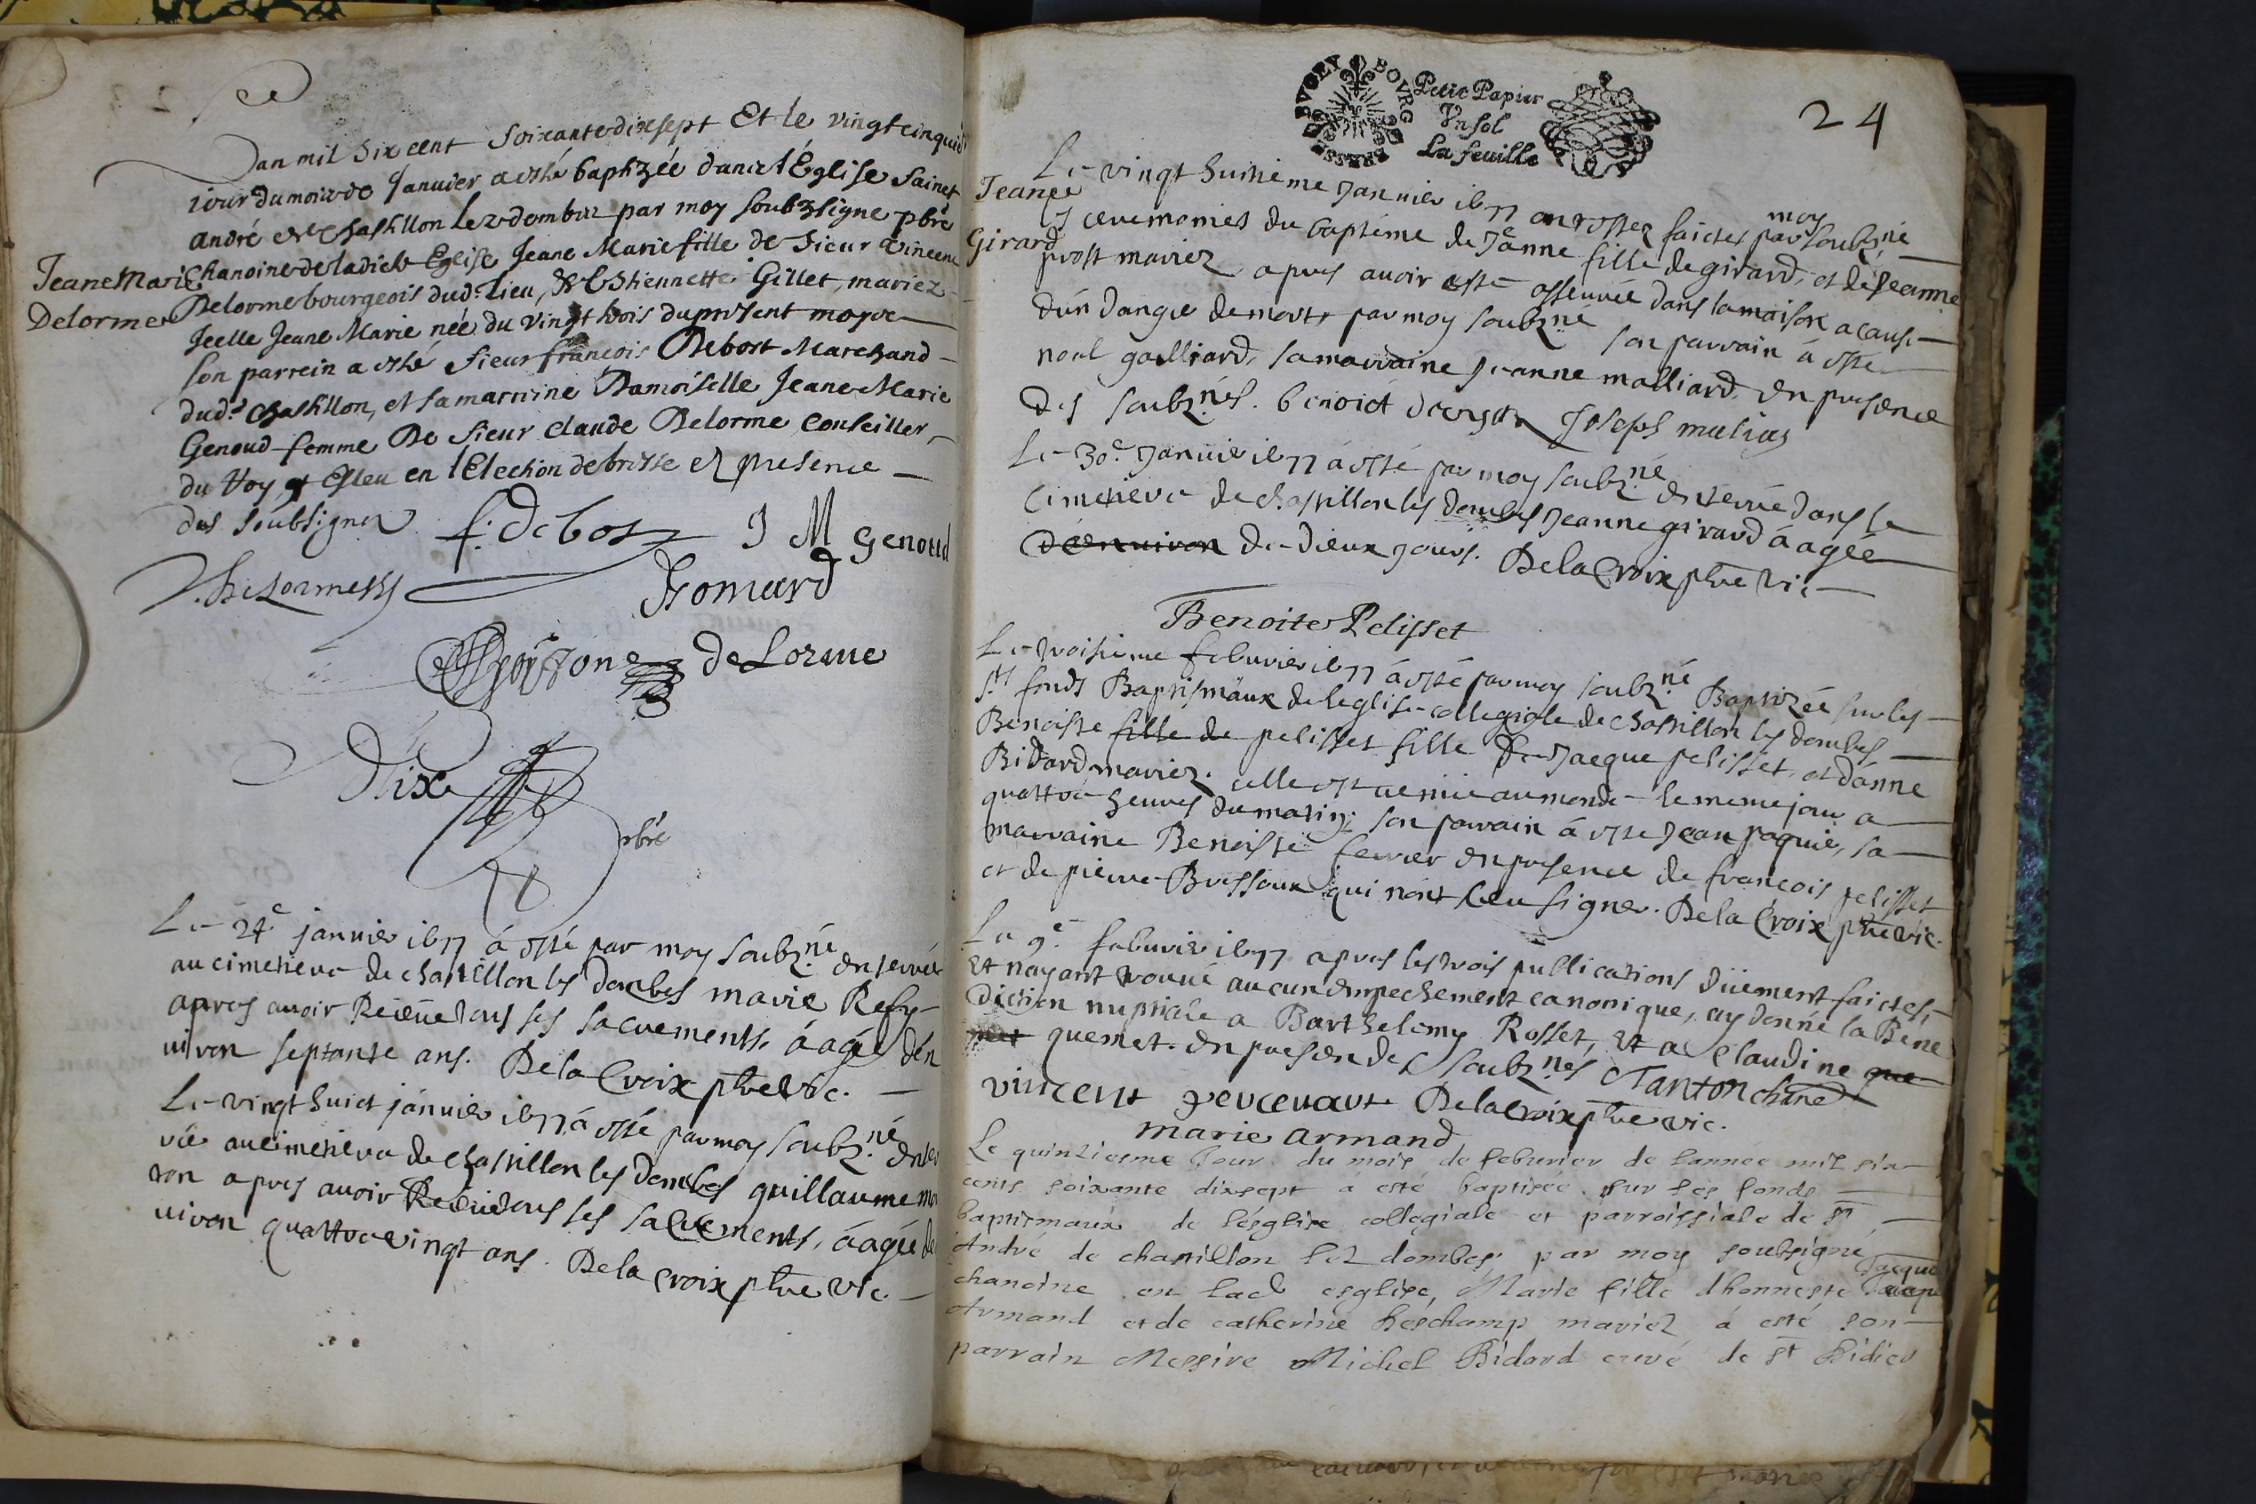 Lan mil Six cent Soixante dix sept Et le vingt cinquie
iour du mois de Janvier a esté baptizée dans l'Eglise Sainct
André de Chastillon lez dombez par moy Soubzsigne pbre
Chanoine de ladicte Eglise Jeane Marie fille de Sieur Vincent
Jeane Marie
Delorme
Delorme bourgeois dud. Lieu, & Estiennette Gillet, mariez
Icelle Jeane Marie née du vingt trois du present moys
son parrein a esté Sieur françois Debost Marchand
dud. Chastillon, et sa marrine Damoiselle Jeane Marie
Genoud femme De Sieur Claude Delorme Conseiller
du Roy et Esleu en l'Election de bresse en presence
des soubsignez f. Debost J M Genoud
Delorme
Gomard
de Lorme
Dix
pbre
Le 24e janvier 1677 á esté par moy soubz.né enterrée
au cimetiere de chastillon les Dombes marie Refy
apres avoir Receu tous ses sacrements, áagée den
viron septante ans. Dela Croix ptre vic.
Le vingt huict janvier 1677 á esté par moy soubz.né enter
rée au cimetiere de chastillon les Dombes guillaume mo
ron apres avoir Receu tous ses sacrements, áagée de
viron quattre vingt ans. Dela croix ptre vic.
BRESSE BVGEY BOVRG
Petit Papier
Vn sol
La feuille
24
Jeane
Girard
Le vingt huitieme Janvier 1677 on estez faictes par moy soubz.né
les ceremonies du baptéme de Jeanne fille de girard, et de Jeanne
prost mariez apres avoir esté asseuvée dans la maison a cause
d'ún dange de mort, par moy soubz.né son parrain á esté
noel galliard, sa marraine Jeanne malliard, en presence
des soubz.nés. benoict Joseph
Le 30e Janvie 1677 á esté par moy soubz.né enterrée dans le
cimetiere de chastillon les Dombes Jeanne girard áagée
d'environ de Dieux jours. Dela Croix ptre vic
Benoite Pelisset
Le troisieme febuvrier 1677 á esté par moy soubz.né Baptizée sur les
sts fonds Baptismaux de leglise collegiale de chastillon les dombes
Benoiste fille de pelisset fille de Jacque pelisset, et dánne
Bidard mariez. celle est venüe au monde le meme jour a
quattre heures du matin; son parrain á esté Jean paquie, sa
marraine Benoiste ferrier en presence de françois pelisset
et de pierre Bressoux qui nont sceu signer. Dela Croix ptre vic.
Le 9e. febuvrie 1677 apres les trois publications düement faictes,
et náyant trouué aucun empechement canonique, ay donné la Béné
diction nuptiale a Barthelemy Rosset, et a Claudine que
met quemet. en presen des soubz.nés Tanton chane
vincent Dela croix ptre vic.
marie armand
Le quinziesme Jour du mois de feburier de lannée mil six
cents soixante dixsept á esté baptisée sur les fonds
baptismaux de l'ésglise collegiale et parroissiale de st
André de chastillon lez dombes par moy soubsigné
chanoine en lad esglise, Marie fille dhonneste Jacque Jacque
Armand et de catherine déschamp mariez á esté son
parrain Messire Michel Bidard curé de st Didier